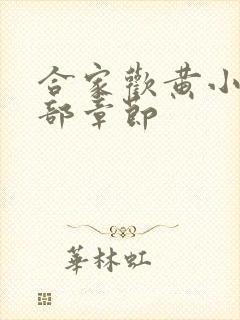 合家歡黃小
部章節
華林虹